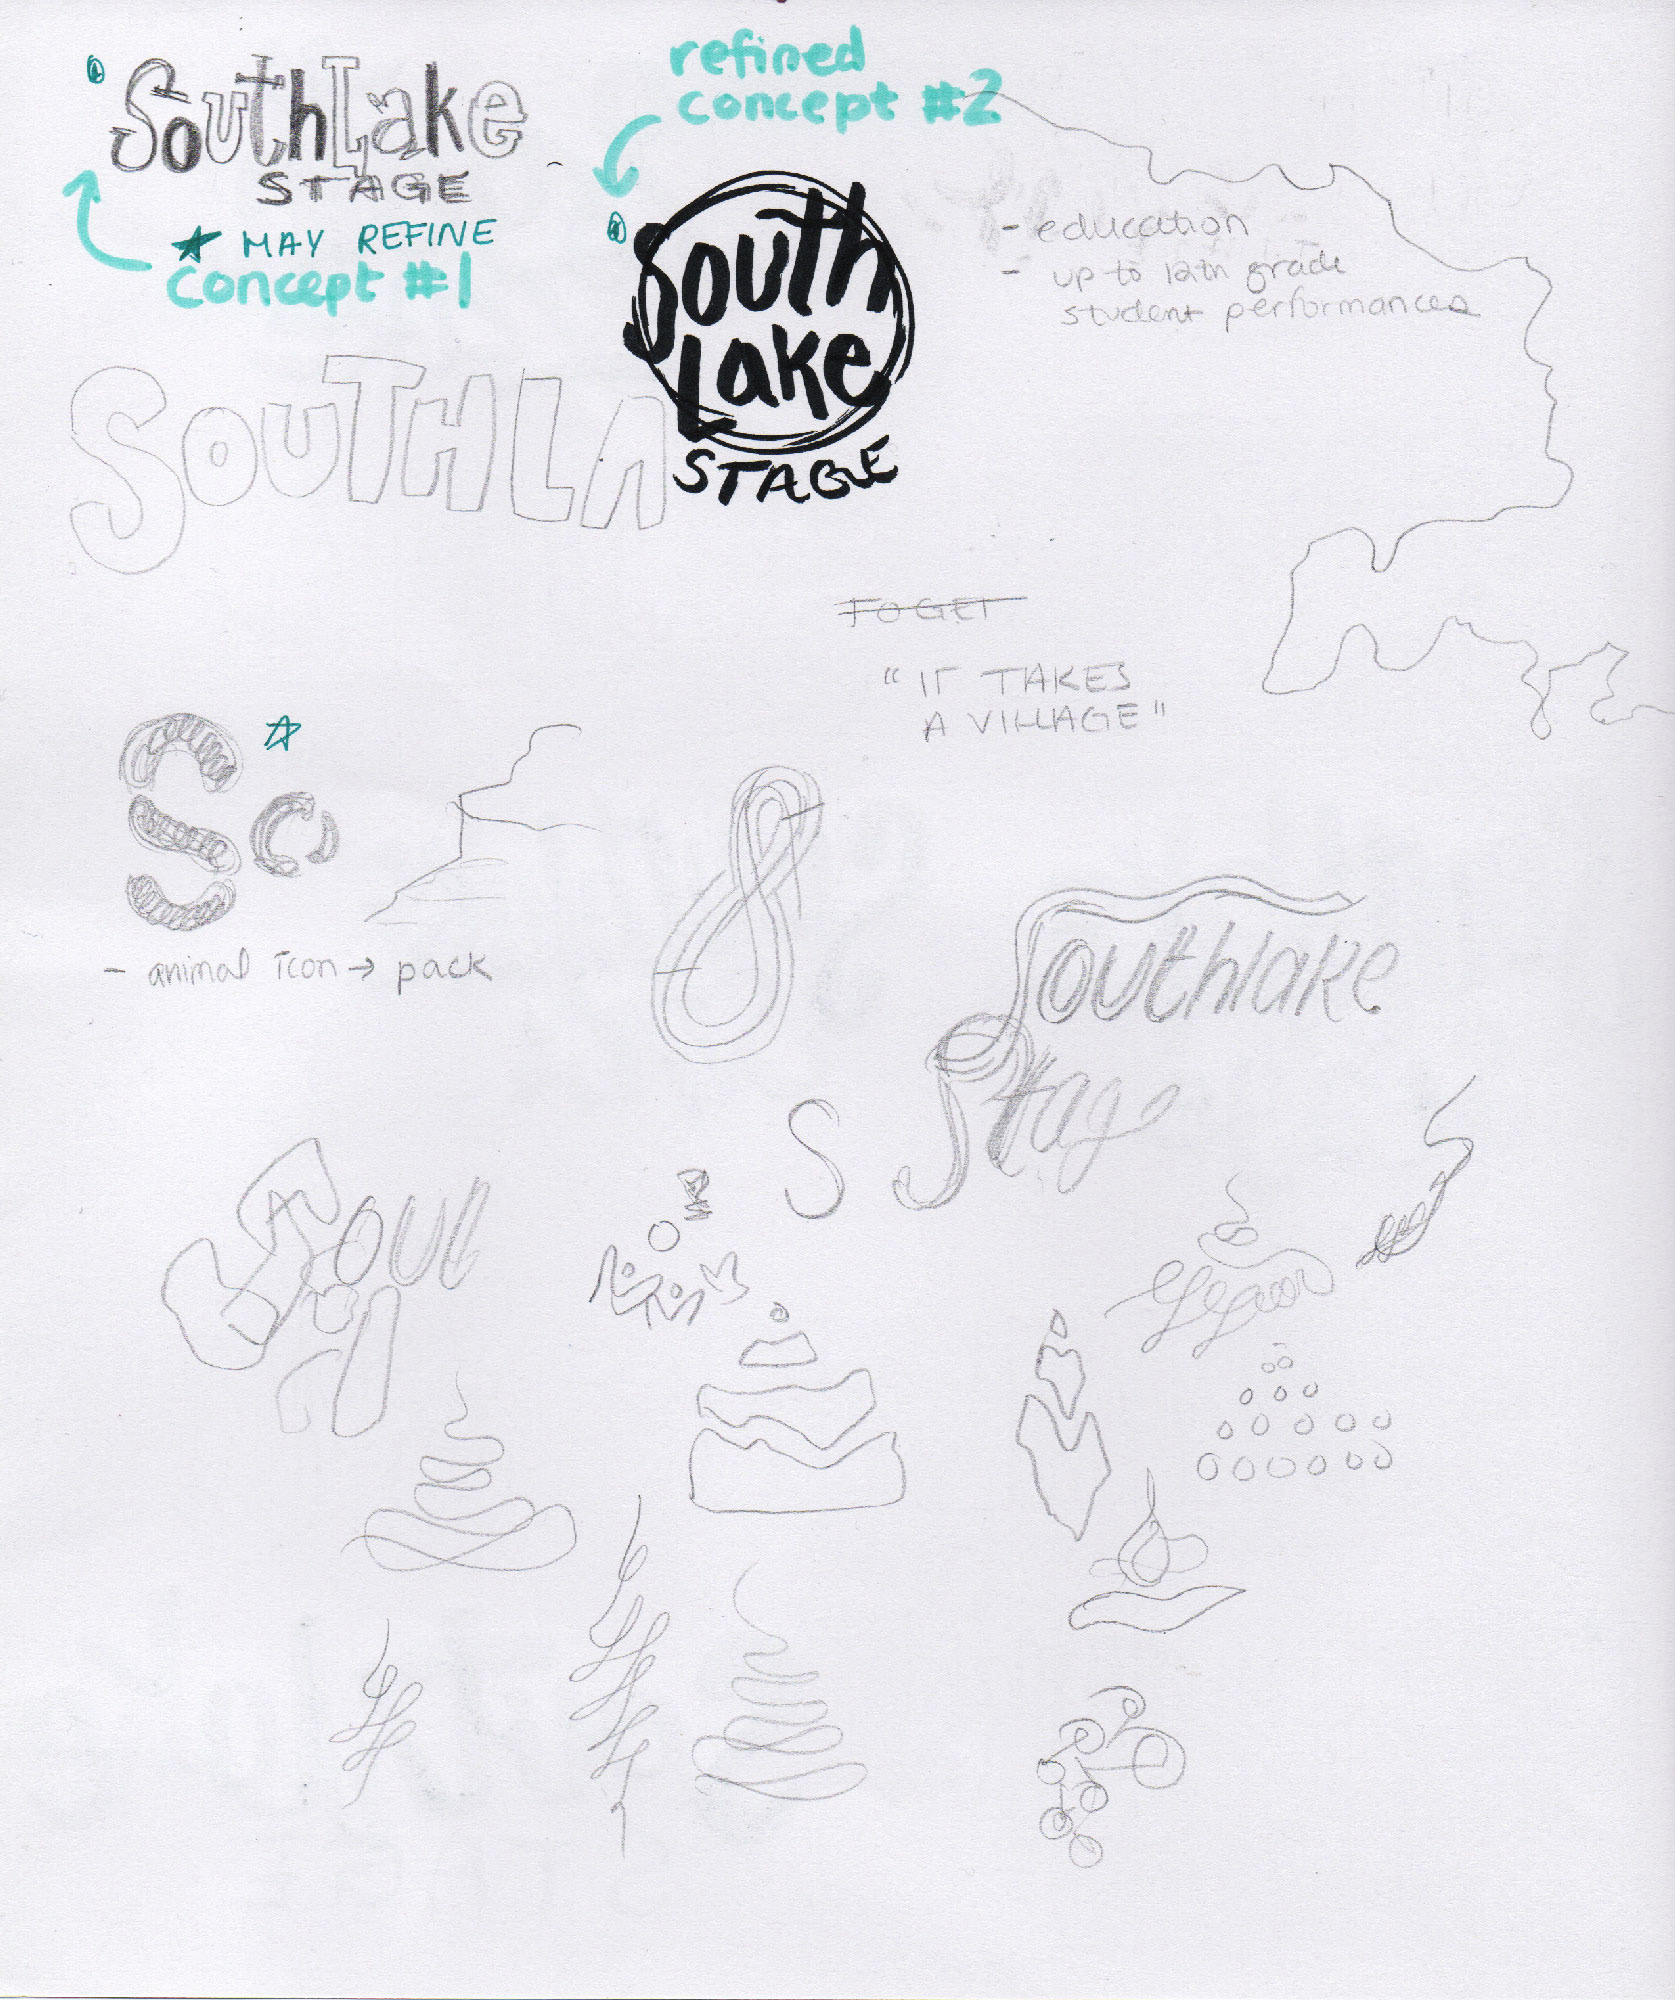 SouthLake
STAGE
★ MAY REFINE
concept #1
refined
concept #2
South
Lake
STAGE
- education
- up to 12th grade
student performances
SOUTHLA
TOGET
"IT TAKES
A VILLAGE"
So
- animal icon → pack
Southlake
Stage
S
Sout